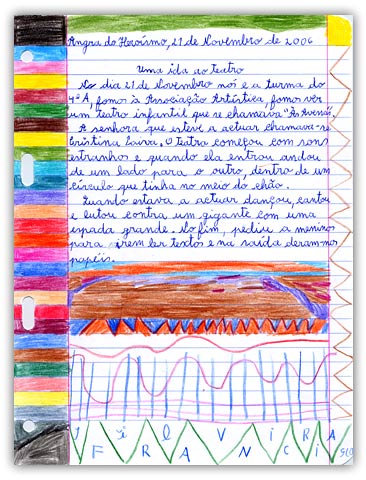 Angra do Heroísmo, 21 de Novembro de 2006
Uma ida ao teatro
No dia 21 de Novembro nós e a turma do
4º A, fomos à Associação Artística, fomos ver
um teatro infantil que se chamava "As Avenas".
A senhora que esteve a actuar chamava-se
Cristina Loira. O teatro começou com sons
estranhos e quando ela entrou andou
de um lado para o outro, dentro de um
círculo que tinha no meio do chão.
Quando estava a actuar dançou, cantou
e lutou contra um gigante com uma
espada grande. No fim, pediu a meninos
para irem ler textos e na saída deram-nos
papéis.